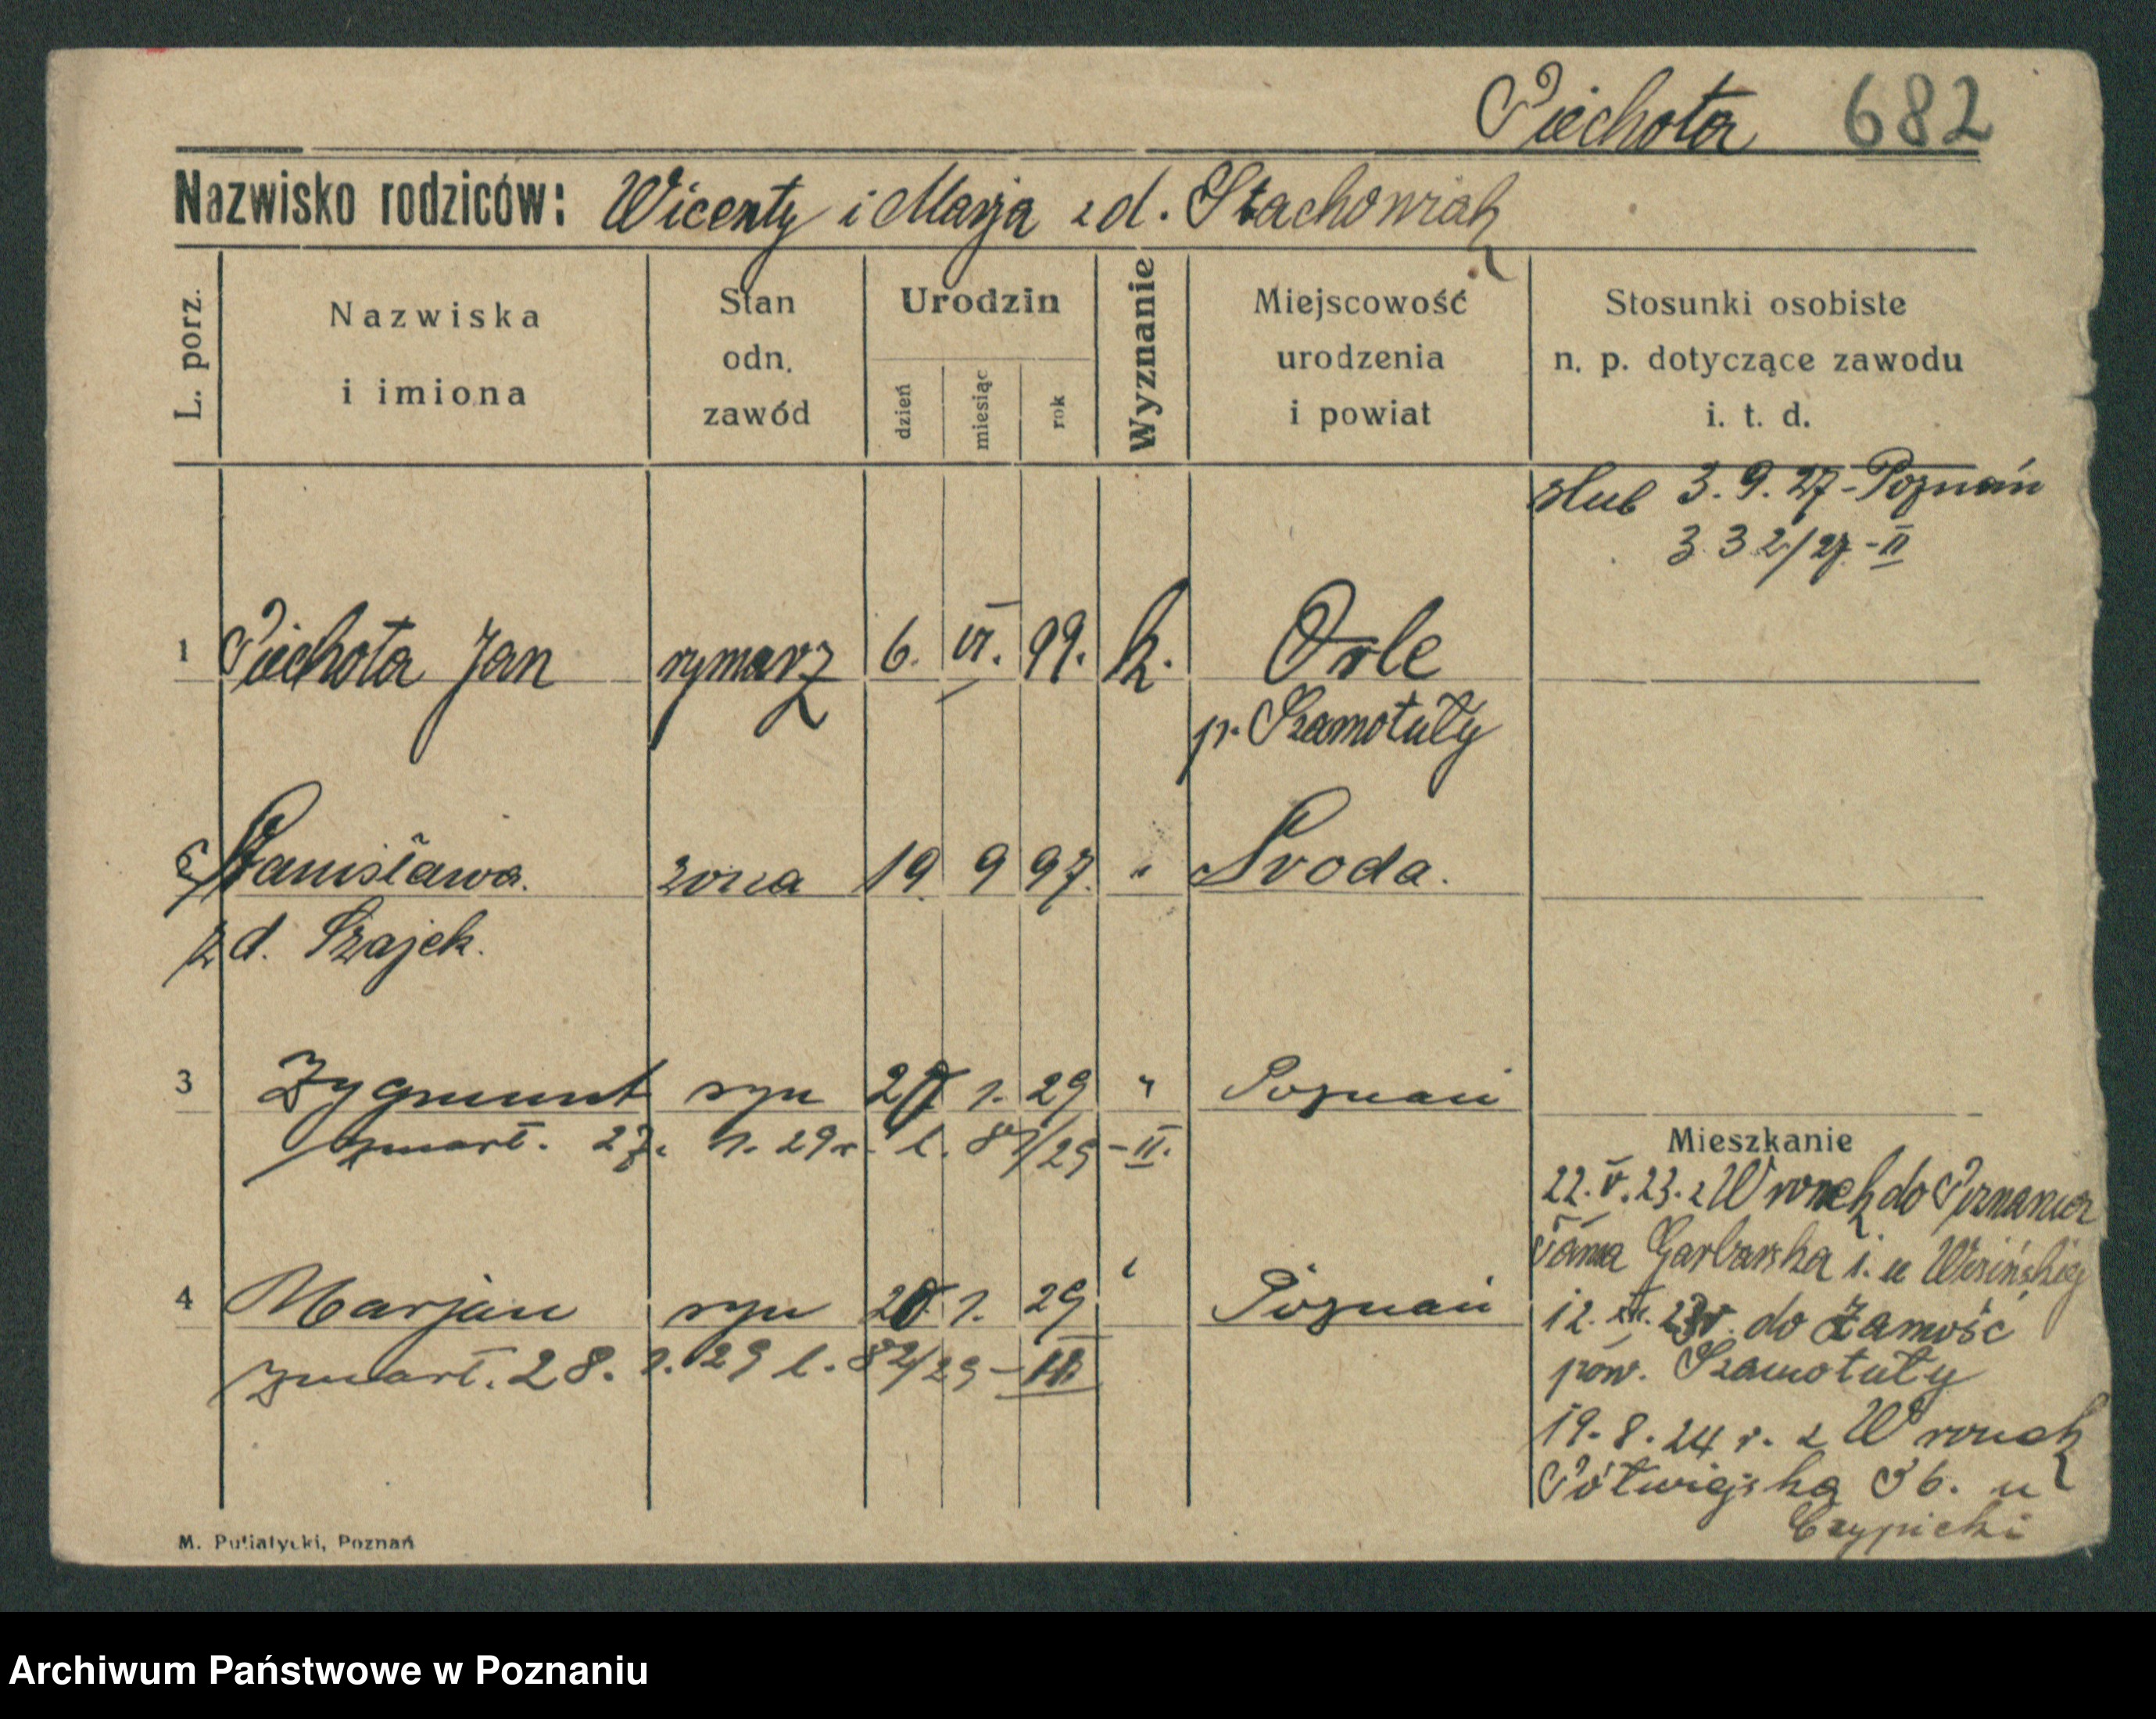 Piechota 682
Nazwisko rodziców: Wicenty i Marja z d. Stachowiak
L. porz.
Nazwiska
i imiona
Stan
odn.
zawód
Urodzin
dzień
miesiąc
rok
Wyznanie
Miejscowość
urodzenia
i powiat
Stosunki osobiste
n. p. dotyczące zawodu
i. t. d.
slub 3.9.27-Poznań
332/27-II
1 Piechota Jan rymarz 6. VI. 99. k. Orle
p. Szamotuły
Stanisława. zona 19 9 97. " Sroda.
z d. Szajek.
3 Zygmunt syn 1. 29 " Poznań
zmarł. 27. 1. 29 r. l. 81/29-II.
Mieszkanie
22.V.23. z Wronek do Poznania
Tama Garbarska i. u
4 Marjan syn 1. 29 " Poznań
12. do Zamość
zmarł. 28. 1. 29 l. 82/29-II
pow. Szamotuły
19.8.24 r. z Wronek
Półwiejska 36. u
Czypicki
M. Putiatycki, Poznań
Archiwum Państwowe w Poznaniu